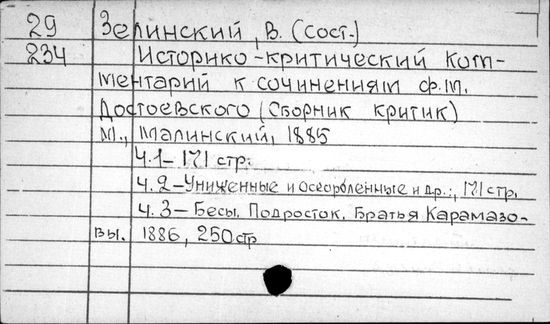 29 Зелинский, В. (сост.)
234 Историко-критический ком-
ментарий к сочинениям Ф.М.
Достоевского (Сборник критик)
М., Малинский, 1885
Ч.1 – 171 стр.
Ч.2 – Униженные и оскорбленные и др.:, 171 стр.
Ч.3 – Бесы. Подросток. Братья Карамазо-
вы. 1886, 250 стр